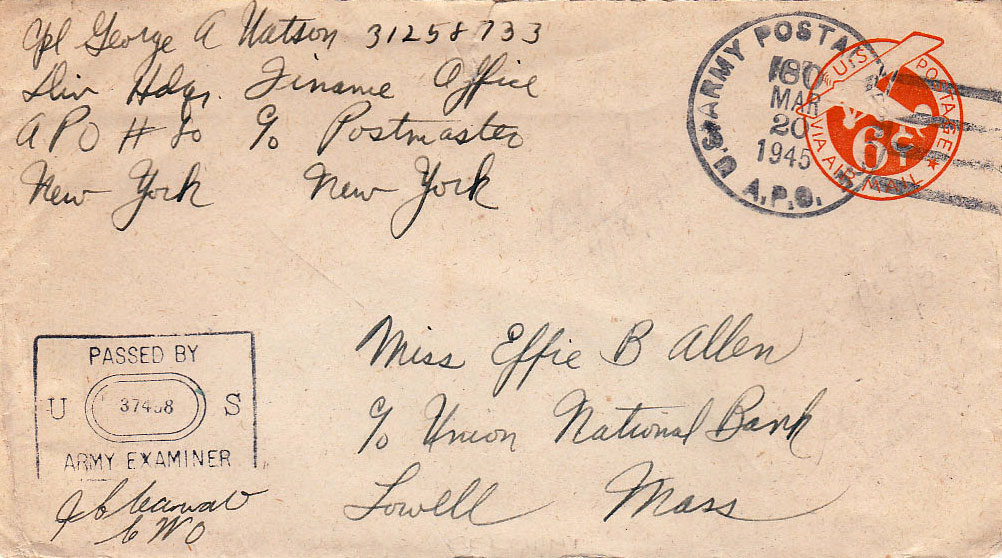 Cpl George A Watson 31258733
Div Hdqs. Finance Office
APO # 80 c/o Postmaster
New York New York
U.S. ARMY POSTAL
MAR
20
1945
A.P.O.
U.S. POSTAGE
6¢
VIA AIR MAIL
PASSED BY
U S
ARMY EXAMINER
CWO
Miss Effie B Allen
c/o Union National Bank
Lowell Mass